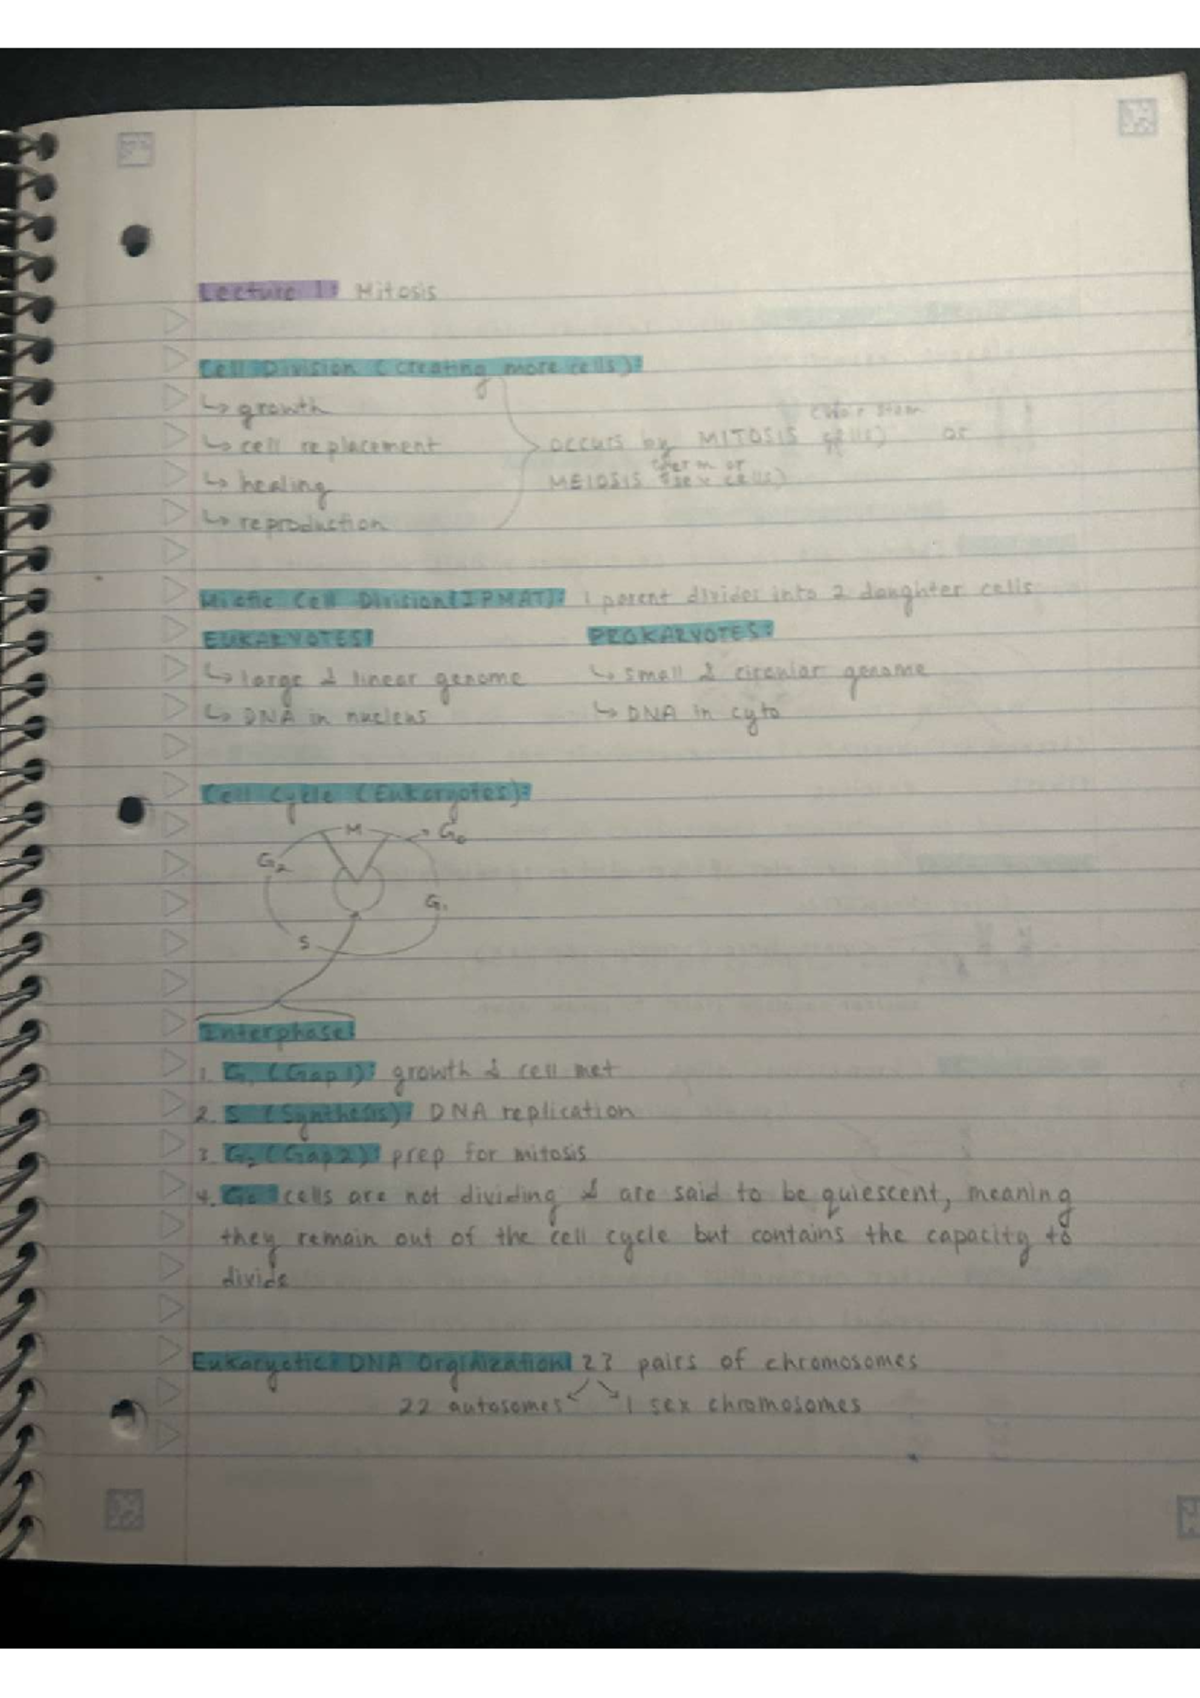 Lecture 1: Mitosis
Cell Division (creating more cells):
↳ growth
↳ cell replacement
↳ healing
↳ reproduction
occurs by MITOSIS cells) or
MEIOSIS (germ or sex cells)
Cell Division (IPMAT): 1 parent divides into 2 daughter cells
EUKARYOTES:
↳ large & linear genome
↳ DNA in nucleus
PROKARYOTES:
↳ small & circular genome
↳ DNA in cyto
Cell Cycle (Eukaryotes):
M
G₀
G₂
G₁
S
Interphase:
1. G₁ (Gap 1): growth & cell met
2. S (Synthesis): DNA replication
3. G₂ (Gap 2): prep for mitosis
4. G₀: cells are not dividing & are said to be quiescent, meaning
they remain out of the cell cycle but contains the capacity to
divide
Eukaryotic DNA Orginization: 23 pairs of chromosomes
22 autosomes
1 sex chromosomes